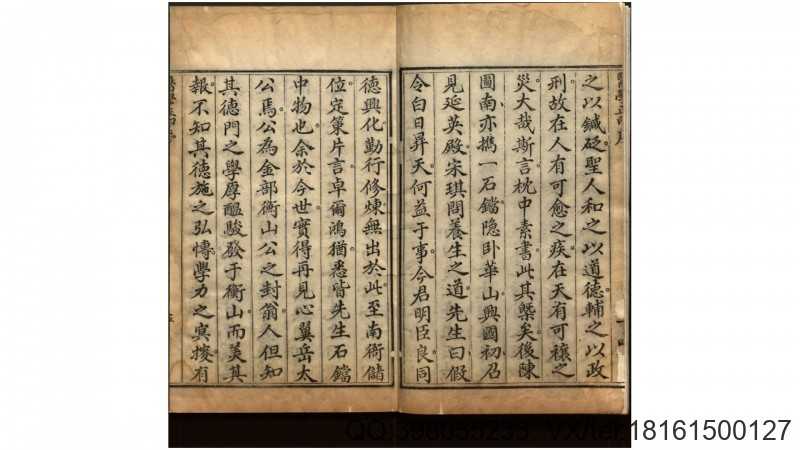 之以鍼砭聖人和之以道德輔之以政
刑故在人有可愈之疾在天有可禳之
災大哉斯言枕中素書此其槩矣後陳
圖南亦攜一石鐺隐卧華山興國初召
見延英殿宋琪問養生之道先生曰假
令白日昇天何益于事今君明臣良同
德興化勤行修煉無出於此至南衙儲
位定策片言卓爾鴻猶悉皆先生石鐺
中物也余於今世實得再見心翼岳太
公焉公為金部衡山公之封翁人但知
其德門之學厚醞駿發于衡山而美其
報不知其德施之弘慱學力之㝠搜有
18161500127